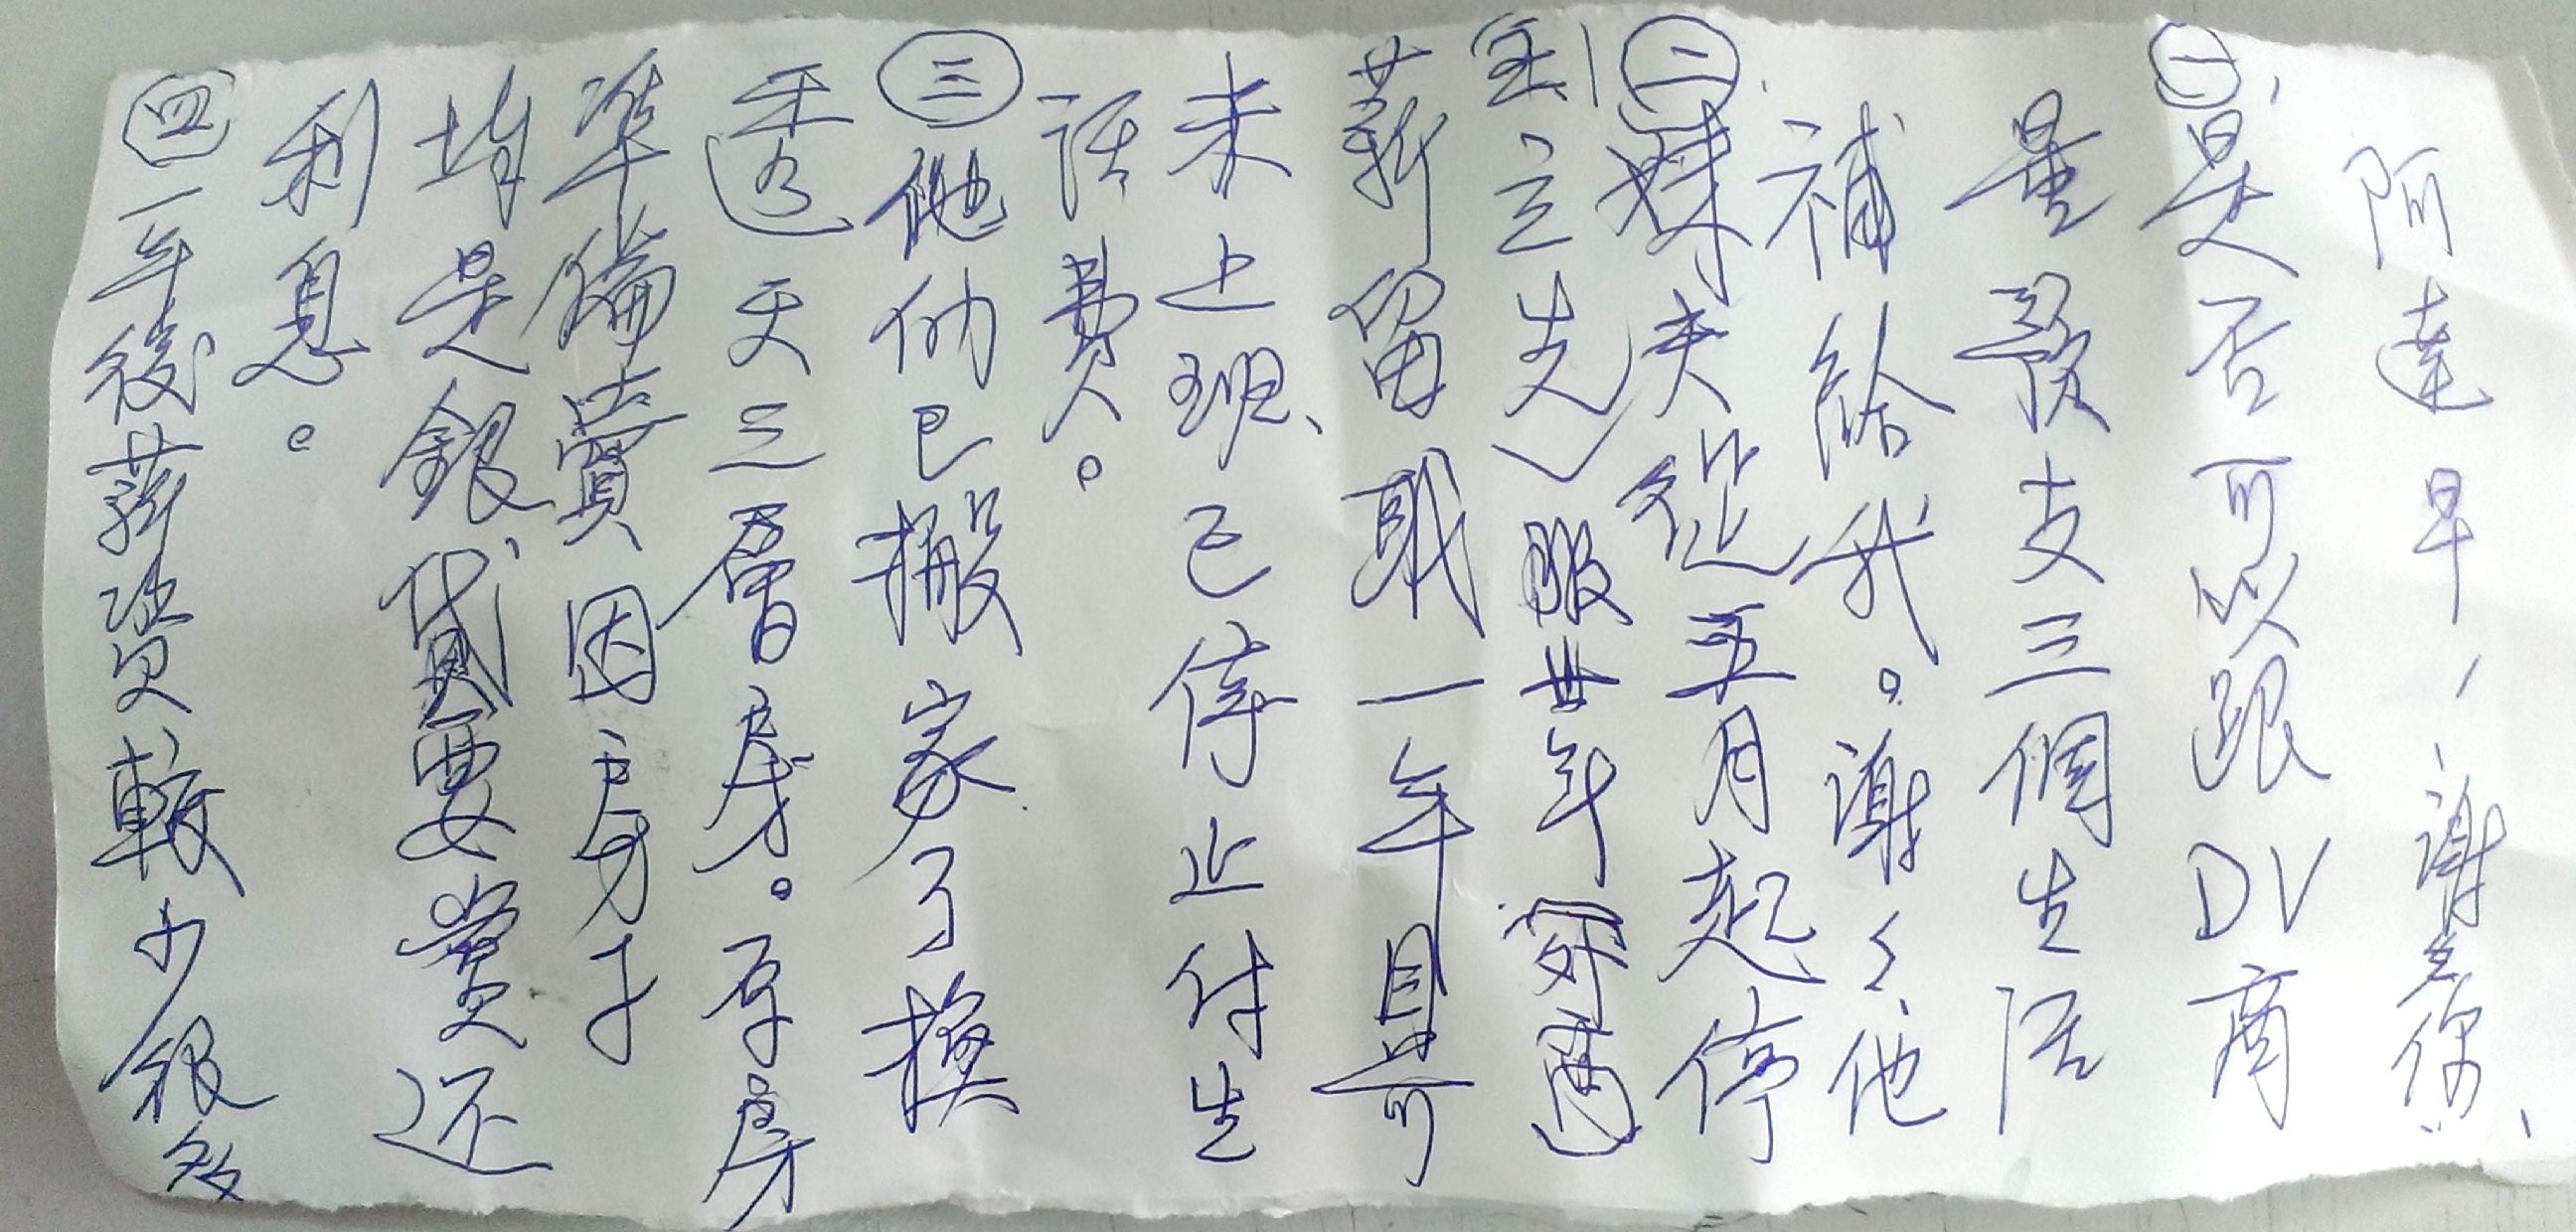 阿達早，謝謝你、
㊀、是否可以跟DV商
量預支三個生活
補給我。謝謝、他
㊁妹夫從五月起停
主之先 服廿年
薪留職一年目前
未上班、已停止付生
活費。
㊂他們已搬家了換
透天三層房。原房
準備賣因房子
是銀貸要賣还
利息。
㊃一年後薪資較少很多